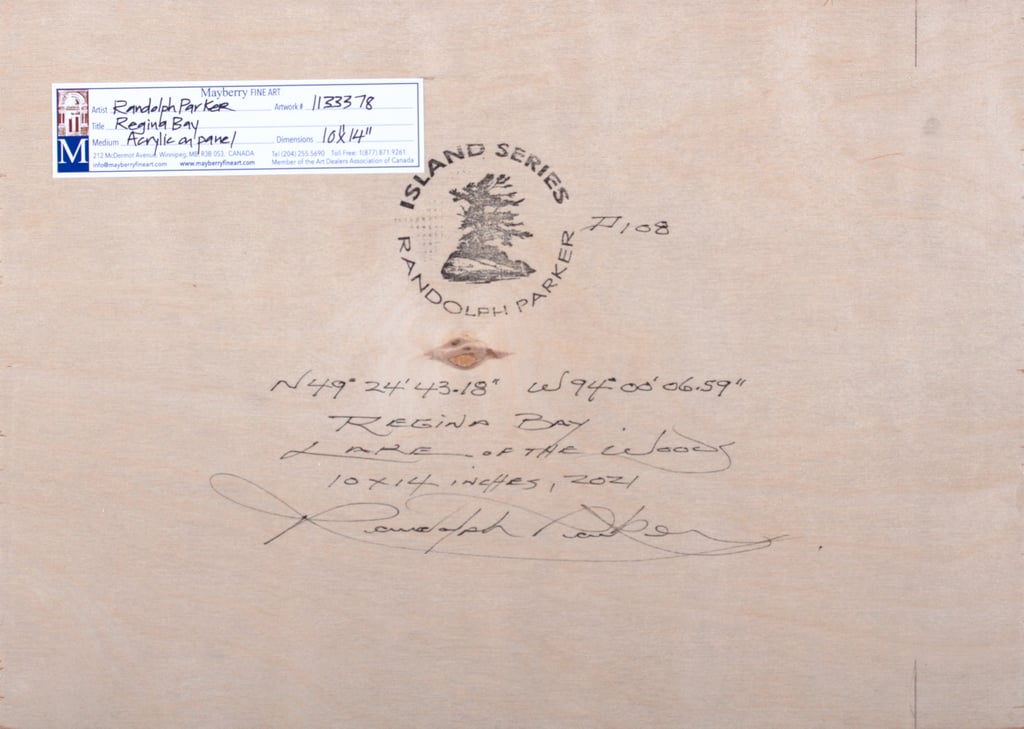 Mayberry FINE ART
Artist Randolph Parker Artwork # 1133378
Title Regina Bay
Medium Acrylic on panel Dimensions 10"x14"
M 212 McDermot Avenue, Winnipeg, MB R3B 0S3, CANADA Tel (204) 255.5690 Toll Free: 1(877) 871.9261
info@mayberryfineart.com www.mayberryfineart.com Member of the Art Dealers Association of Canada
ISLAND SERIES
RANDOLPH PARKER
#108
N 49° 24' 43.18" W 94° 00' 06.59"
REGINA BAY
LAKE OF THE WOODS
10 x 14 inches, 2021
Randolph Parker